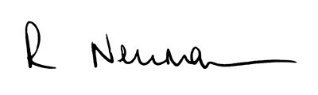 R Neuman